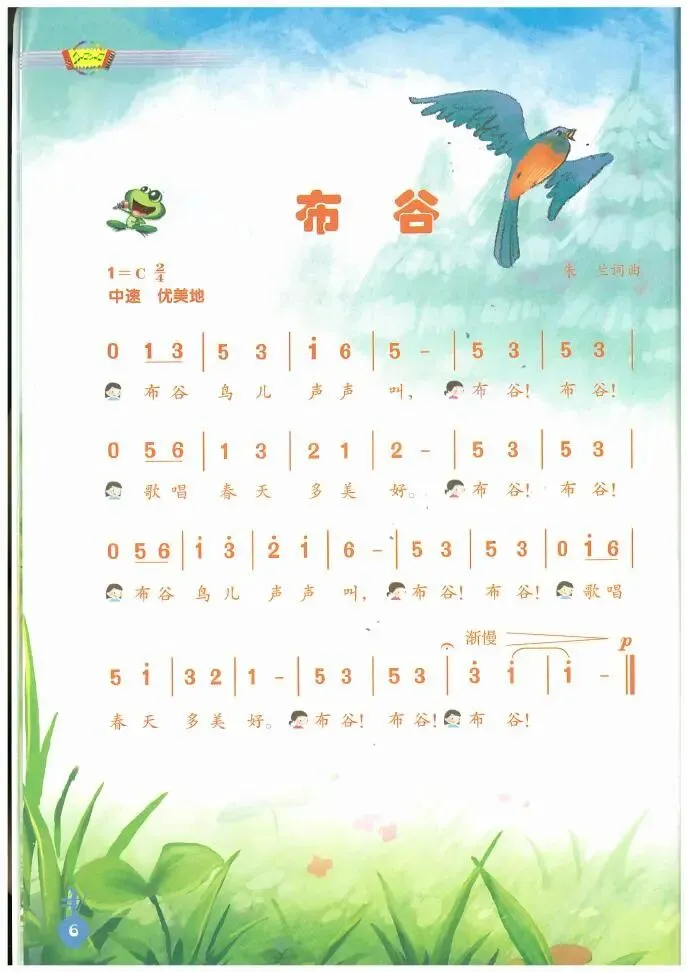 布谷
1=C 2/4
朱 兰词曲
中速 优美地
0 1 3 | 5 3 | i 6 | 5 - | 5 3 | 5 3 |
布谷 鸟儿 声声 叫, 布谷! 布谷!
0 5 6 | 1 3 | 2 1 | 2 - | 5 3 | 5 3 |
歌唱 春天 多美 好。 布谷! 布谷!
0 5 6 | i 3̇ | 2̇ i | 6 - | 5 3 | 5 3 | 0 i 6 |
布谷 鸟儿 声声 叫, 布谷! 布谷! 歌唱
渐慢 p
5 i | 3 2 | 1 - | 5 3 | 5 3 | 3̇ i | i - ‖
春天 多美 好。 布谷! 布谷! 布谷!
6